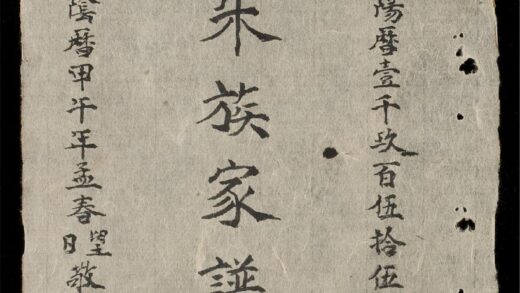 陽曆壹千玖百伍拾伍
朱族家譜
陰曆甲午年孟春望日敬